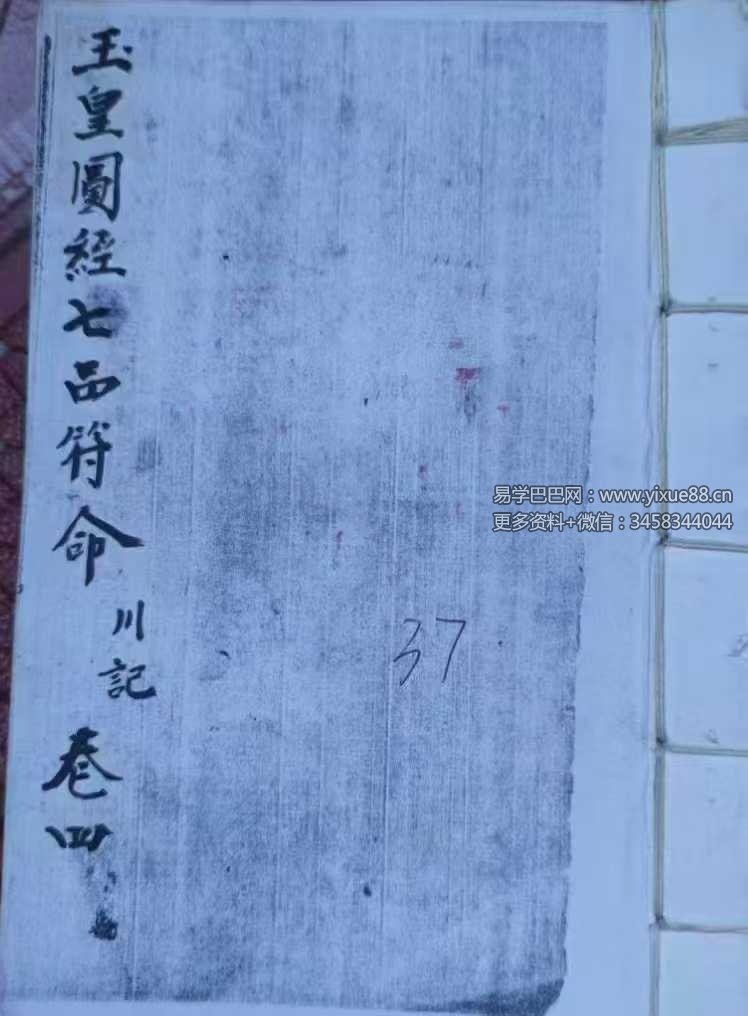 玉皇圓經七品符命
川記
卷四
37
易学巴巴网：www.yixue88.cn
更多资料+微信：3458344044